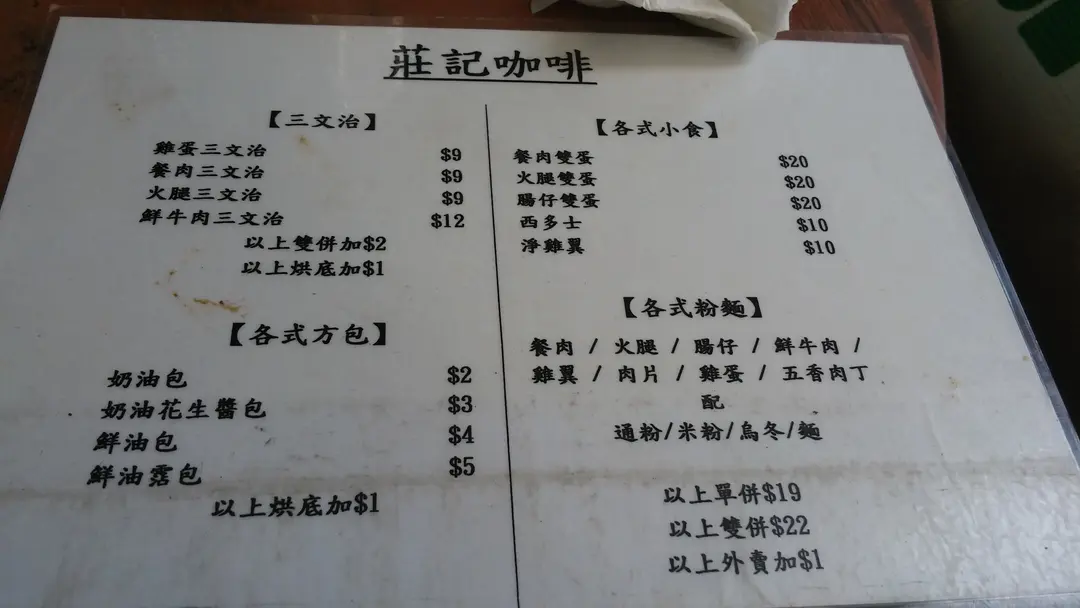 莊記咖啡
【三文治】
雞蛋三文治 $9
餐肉三文治 $9
火腿三文治 $9
鮮牛肉三文治 $12
以上雙併加$2
以上烘底加$1
【各式方包】
奶油包 $2
奶油花生醬包 $3
鮮油包 $4
鮮油霑包 $5
以上烘底加$1
【各式小食】
餐肉雙蛋 $20
火腿雙蛋 $20
腸仔雙蛋 $20
西多士 $10
淨雞翼 $10
【各式粉麵】
餐肉 / 火腿 / 腸仔 / 鮮牛肉 /
雞翼 / 肉片 / 雞蛋 / 五香肉丁
配
通粉/米粉/烏冬/麵
以上單併$19
以上雙併$22
以上外賣加$1